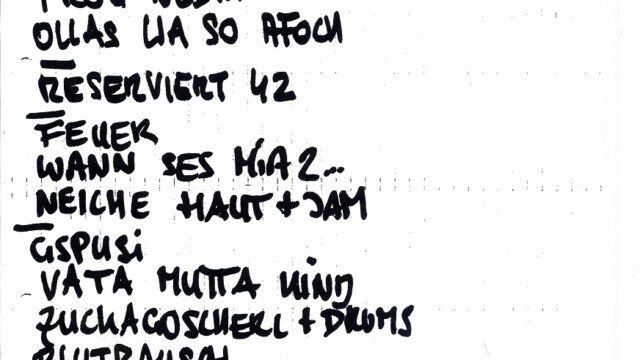 OLLAS LIA SO AFOCH
RESERVIERT 42
FEUER
WANN SES MiA 2...
NEICHE HAUT + JAM
GSPUSi
VATA MUTTA KIND
ZUCKAGOSCHERL + DRUMS
BLUTRAUSCH